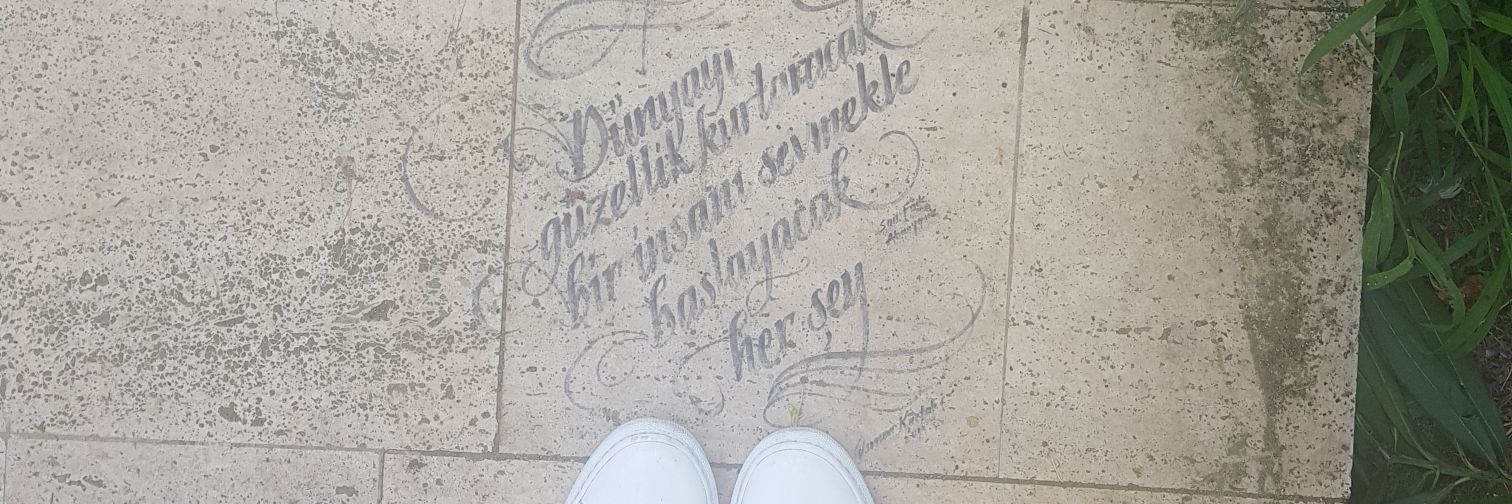 Dünyayı
güzellik kurtaracak
bir insanı sevmekle
başlayacak
her şey
Sait Faik
Abasıyanık